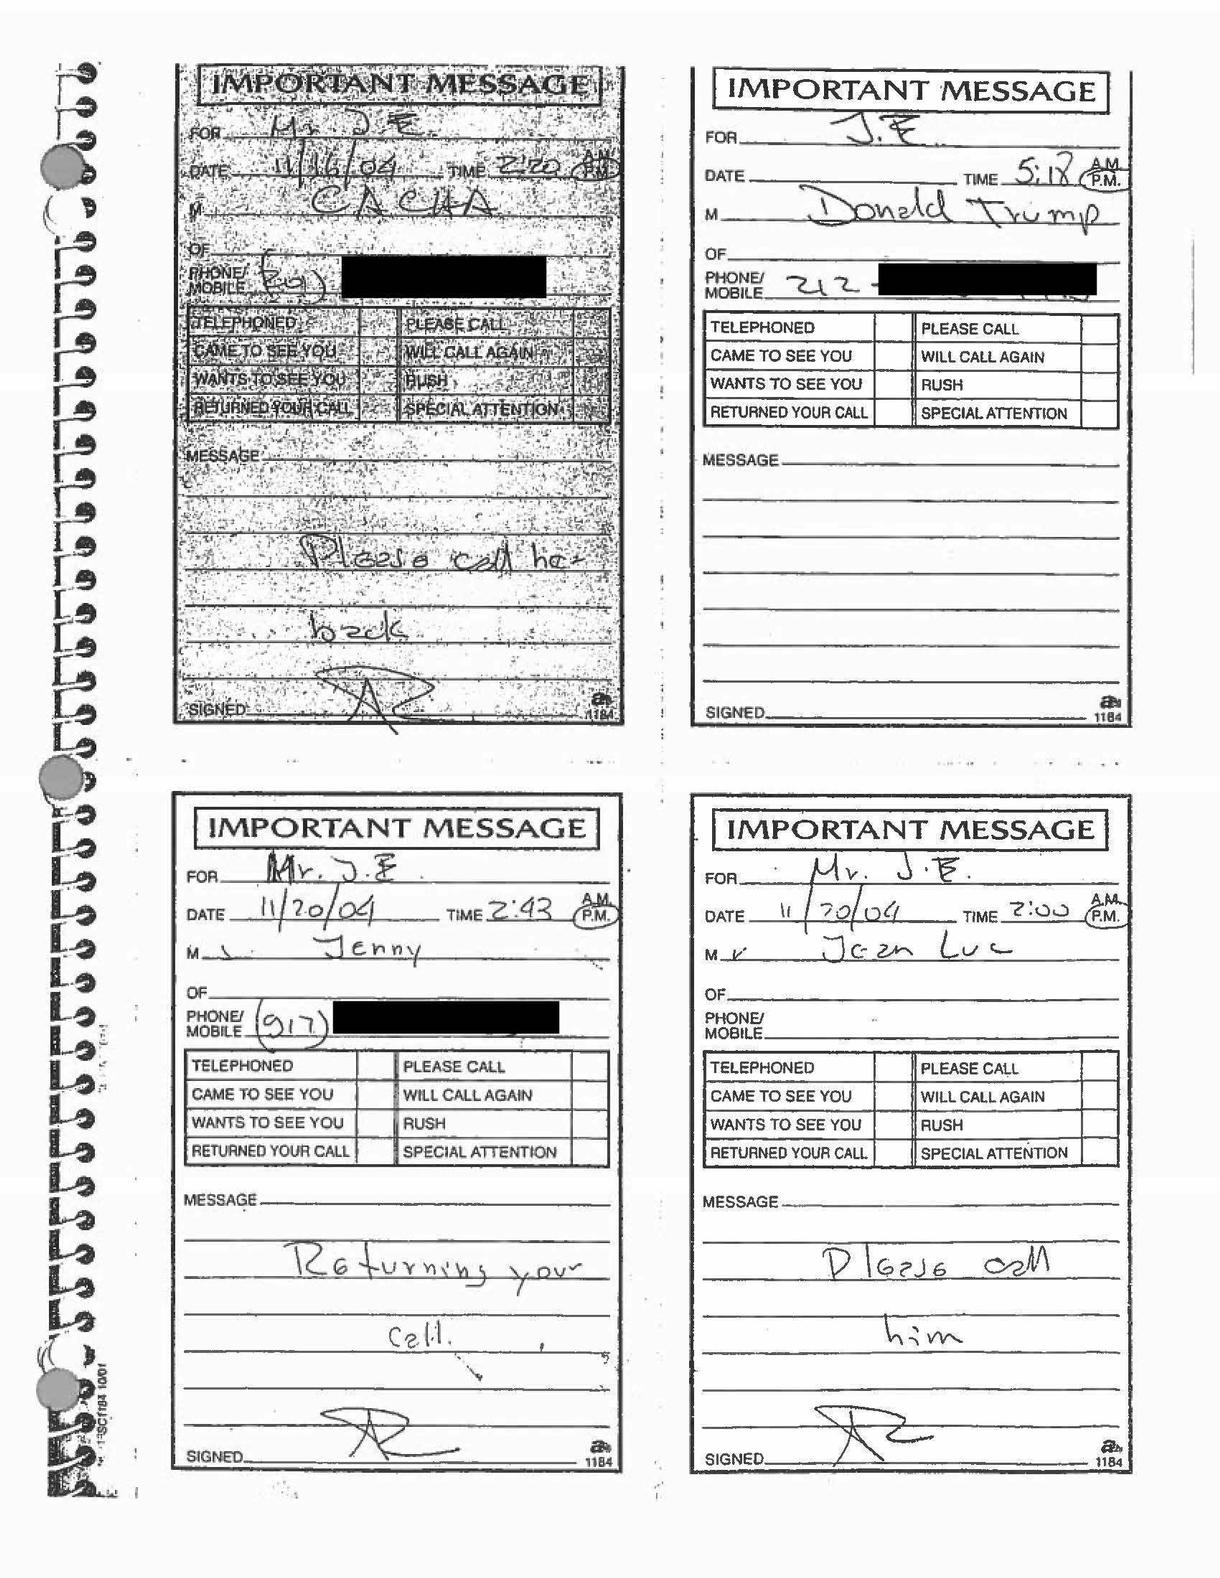 IMPORTANT MESSAGE
FOR Mr. J.E.
DATE 11/16/04 TIME 2:20 A.M. P.M.
M CACHA
OF
PHONE/
MOBILE
TELEPHONED PLEASE CALL
CAME TO SEE YOU WILL CALL AGAIN
WANTS TO SEE YOU RUSH
RETURNED YOUR CALL SPECIAL ATTENTION
MESSAGE
Please call her
back
SIGNED
1184
IMPORTANT MESSAGE
FOR J.E.
DATE TIME 5:18 A.M. P.M.
M Donald Trump
OF
PHONE/
MOBILE 212 -
TELEPHONED PLEASE CALL
CAME TO SEE YOU WILL CALL AGAIN
WANTS TO SEE YOU RUSH
RETURNED YOUR CALL SPECIAL ATTENTION
MESSAGE
SIGNED
1184
IMPORTANT MESSAGE
FOR Mr. J.E.
DATE 11/20/04 TIME 2:43 A.M. P.M.
M Jenny
OF
PHONE/
MOBILE (917)
TELEPHONED PLEASE CALL
CAME TO SEE YOU WILL CALL AGAIN
WANTS TO SEE YOU RUSH
RETURNED YOUR CALL SPECIAL ATTENTION
MESSAGE
Returning your
call.
SIGNED
1184
IMPORTANT MESSAGE
FOR Mr. J.E.
DATE 11/20/04 TIME 2:00 A.M. P.M.
M Jean Luc
OF
PHONE/
MOBILE
TELEPHONED PLEASE CALL
CAME TO SEE YOU WILL CALL AGAIN
WANTS TO SEE YOU RUSH
RETURNED YOUR CALL SPECIAL ATTENTION
MESSAGE
Please call
him
SIGNED
1184
SC1184 10/01